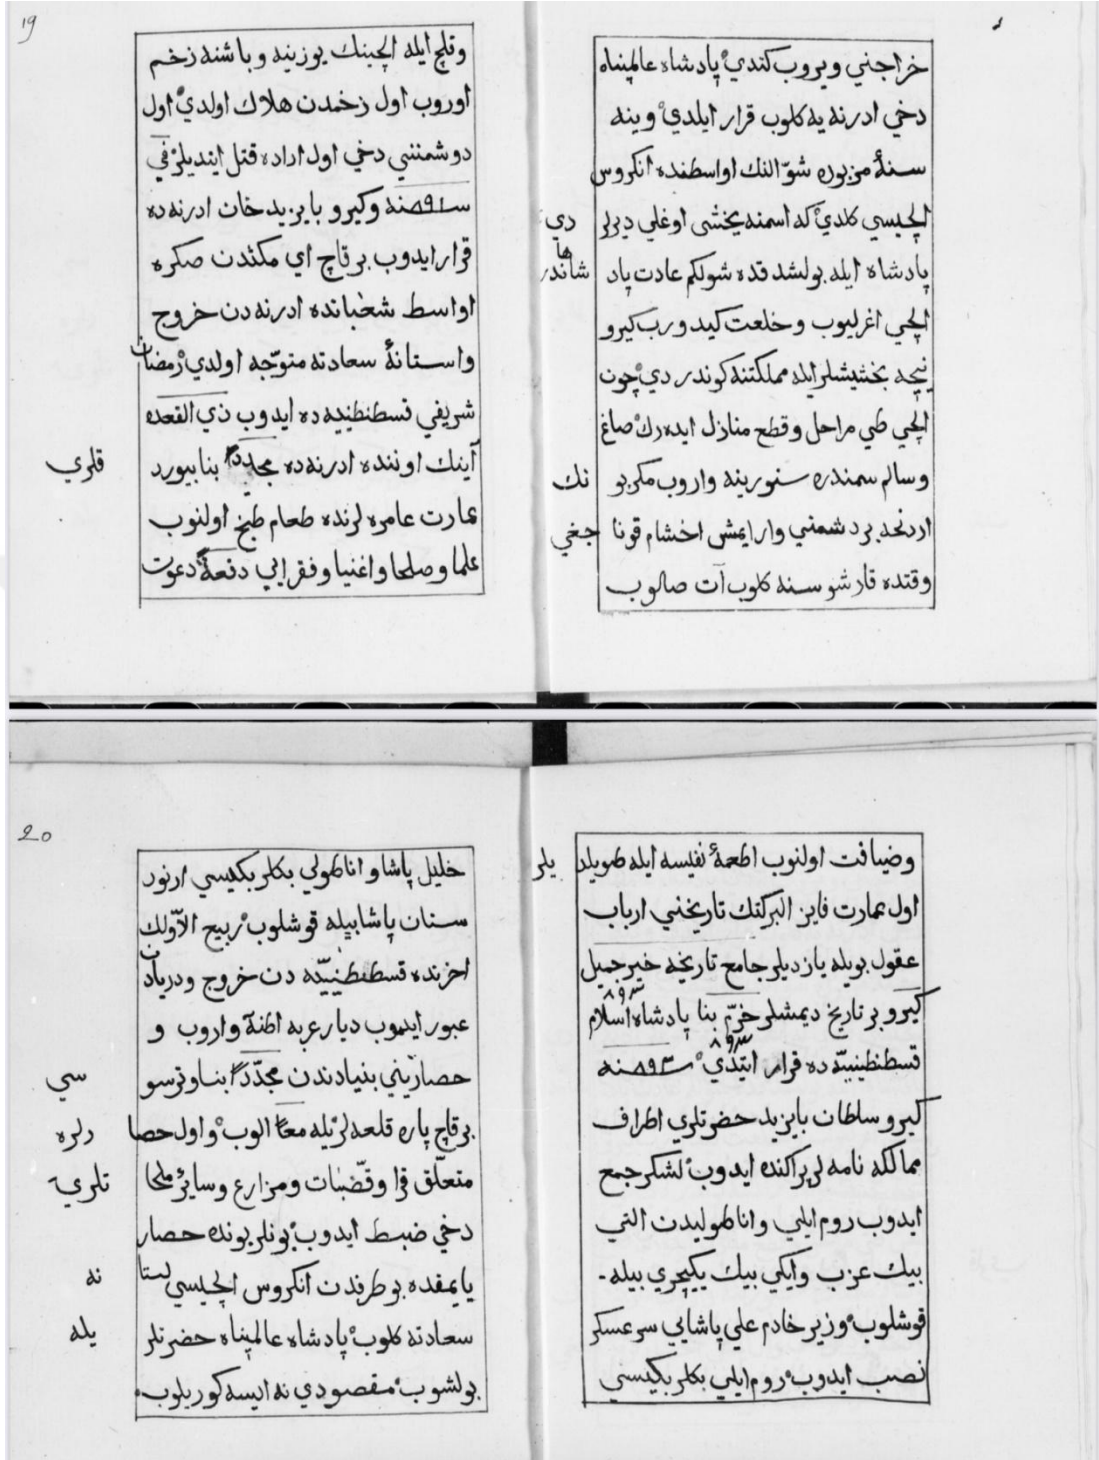 19
خراجني ويروب كندي پادشاه عالمپناه
دخي ادرنه يه كلوب قرار ايلدي وينه
سنۀ مزبوره شوّالنك اواسطنده انكروس
ايلچيسي كلدي كه اسمنه يخشى اوغلي ديرلر دي
پادشاه ايله بولشدقده شولكم عادت پاد شاهاندر
ايلچي اغرليوب وخلعت كيدورب كيرو
نيچه بخششلر ايله مملكتنه كوندردي چون
ايلچي طي مراحل وقطع منازل ايده رك صاغ
وسالم سمندره سنورينه واروب مكربو نك
اردنجه بر دشمني وار ايمش اخشام قونا جغي
وقتده قارشوسنه كلوب آت صالوب
وقلچ ايله ايلچينك يوزينه وباشنه زخم
اوروب اول زخمدن هلاك اولدي اول
دوشمننى دخي اول اراده قتل ايتديلر في
سنه ٨٩١ وكيرو بايزيد خان ادرنه ده
قرار ايدوب بر قاچ اي مكثدن صكره
اواسط شعبانده ادرنه دن خروج
واستانۀ سعادته متوّجه اولدي رمضان
شريفي قسطنطنيه ده ايدوب ذي القعده
آينك اوننده ادرنه ده مجدداً بنا بيورد قلري
عمارت عامره لرنده طعام طبخ اولنوب
علما وصلحا واغنيا وفقرايي دفعةً دعوت
20
وضيافت اولنوب اطعمۀ نفيسه ايله طويلد يلر
اول عمارت فايز البركتك تاريخني ارباب
عقول بويله يازديلر جامع تاريخه خير جميل
كيرو بر تاريخ ديمشلر خرّم بنا پادشاه اسلام ٨٩٣
قسطنطينيّه ده قرار ايتدي سنه ٨٩٣ ٨٩٣
كيرو سلطان بايزيد حضرتلري اطراف
ممالكه نامه لر پراكنده ايدوب لشكر جمع
ايدوب روم ايلي واناطوليدن التي
بيك عزب وايكي بيك يكيچري بيله
قوشلوب وزير خادم علي پاشايي سرعسكر
نصب ايدوب روم ايلي بكلربكيسي
خليل پاشا و اناطولي بكلربكيسي ارنود
سنان پاشا بيله قوشلوب ربيع الآوّلك
اخزنده قسطنطنيّه دن خروج ودريادن
عبور ايدوب ديار عربه اطنۀ واروب و
حصاريني بنيادندن مجدّداً بنا وترسو سي
بر قاچ پاره قلعه لريله معاً الوب واول حصا رلره
متعلّق قرا وقصّبات ومزارع وساير ملحا تلري
دخي ضبط ايدوب بونلر بونده حصار
يا پمقده بو طرفدن انكروس ايلچيسي استا نه
سعادته كلوب پادشاه عالمپناه حضرتلر يله
بولشوب مقصودي نه ايسه كوريلوب